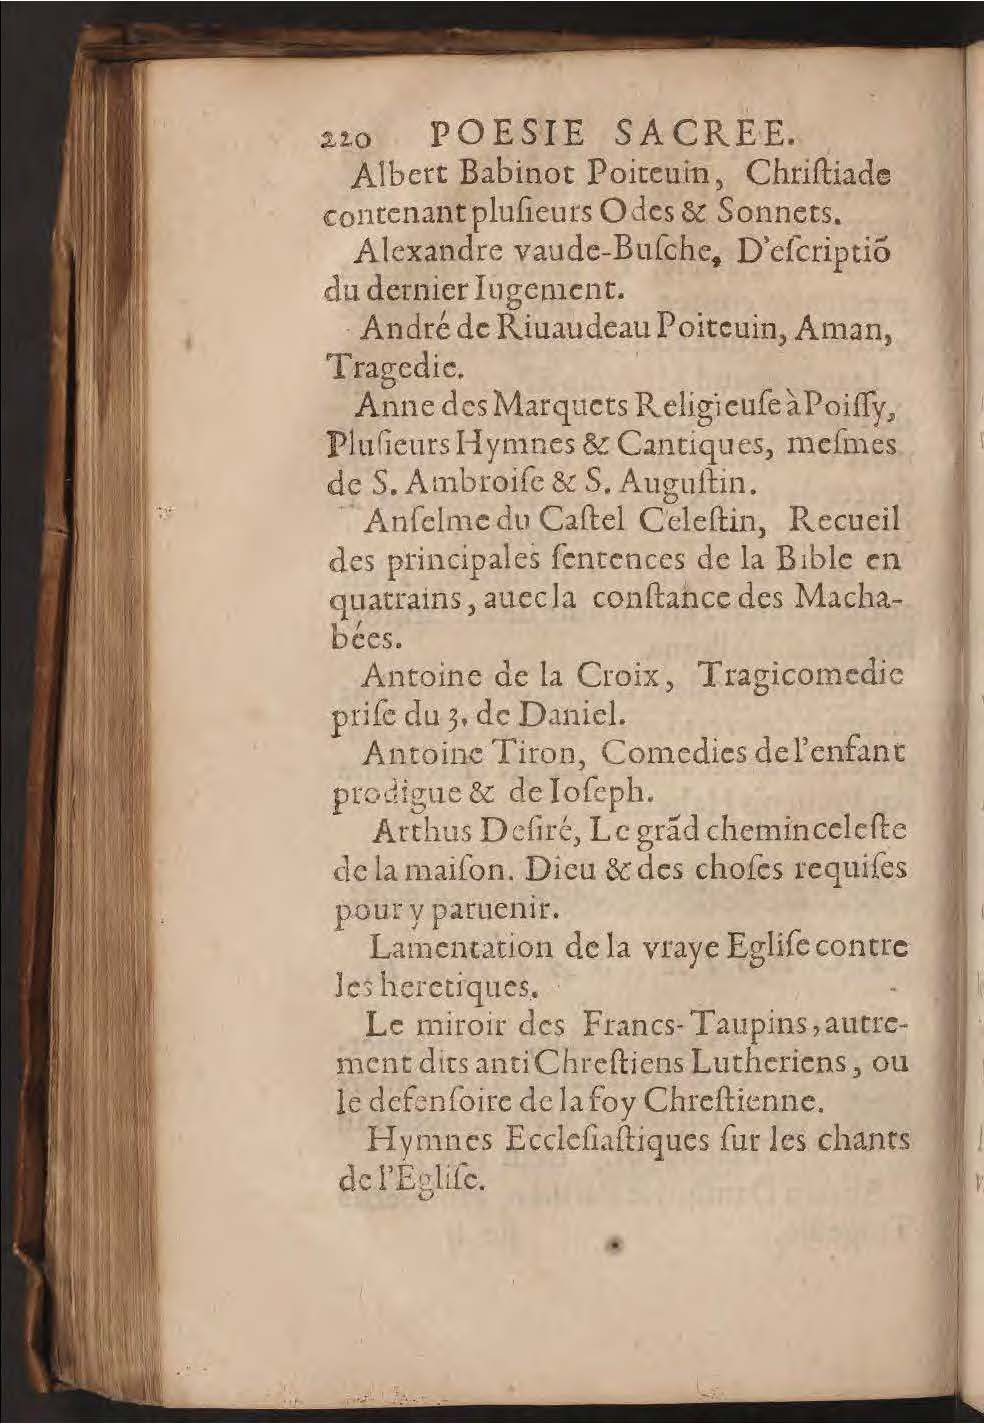 220 POESIE SACREE.
Albert Babinot Poiteuin, Chriſtiade
contenant pluſieurs Odes & Sonnets.
Alexandre vaude-Buſche, D'eſcriptiõ
du dernier Iugement.
André de Riuaudeau Poiteuin, Aman,
Tragedie.
Anne des Marquets Religieuſe à Poiſſy,
Pluſieurs Hymnes & Cantiques, meſmes
de S. Ambroiſe & S. Auguſtin.
Anſelme du Caſtel Celeſtin, Recueil
des principales ſentences de la Bible en
quatrains, auec la conſtance des Macha-
bées.
Antoine de la Croix, Tragicomedie
priſe du 3. de Daniel.
Antoine Tiron, Comedies de l'enfant
prodigue & de Ioſeph.
Arthus Deſiré, Le grãd chemin celeſte
de la maiſon. Dieu & des choſes requiſes
pour y paruenir.
Lamentation de la vraye Egliſe contre
les heretiques.
Le miroir des Francs-Taupins, autre-
ment dits antiChreſtiens Lutheriens, ou
le defenſoire de la foy Chreſtienne.
Hymnes Eccleſiaſtiques ſur les chants
de l'Egliſe.